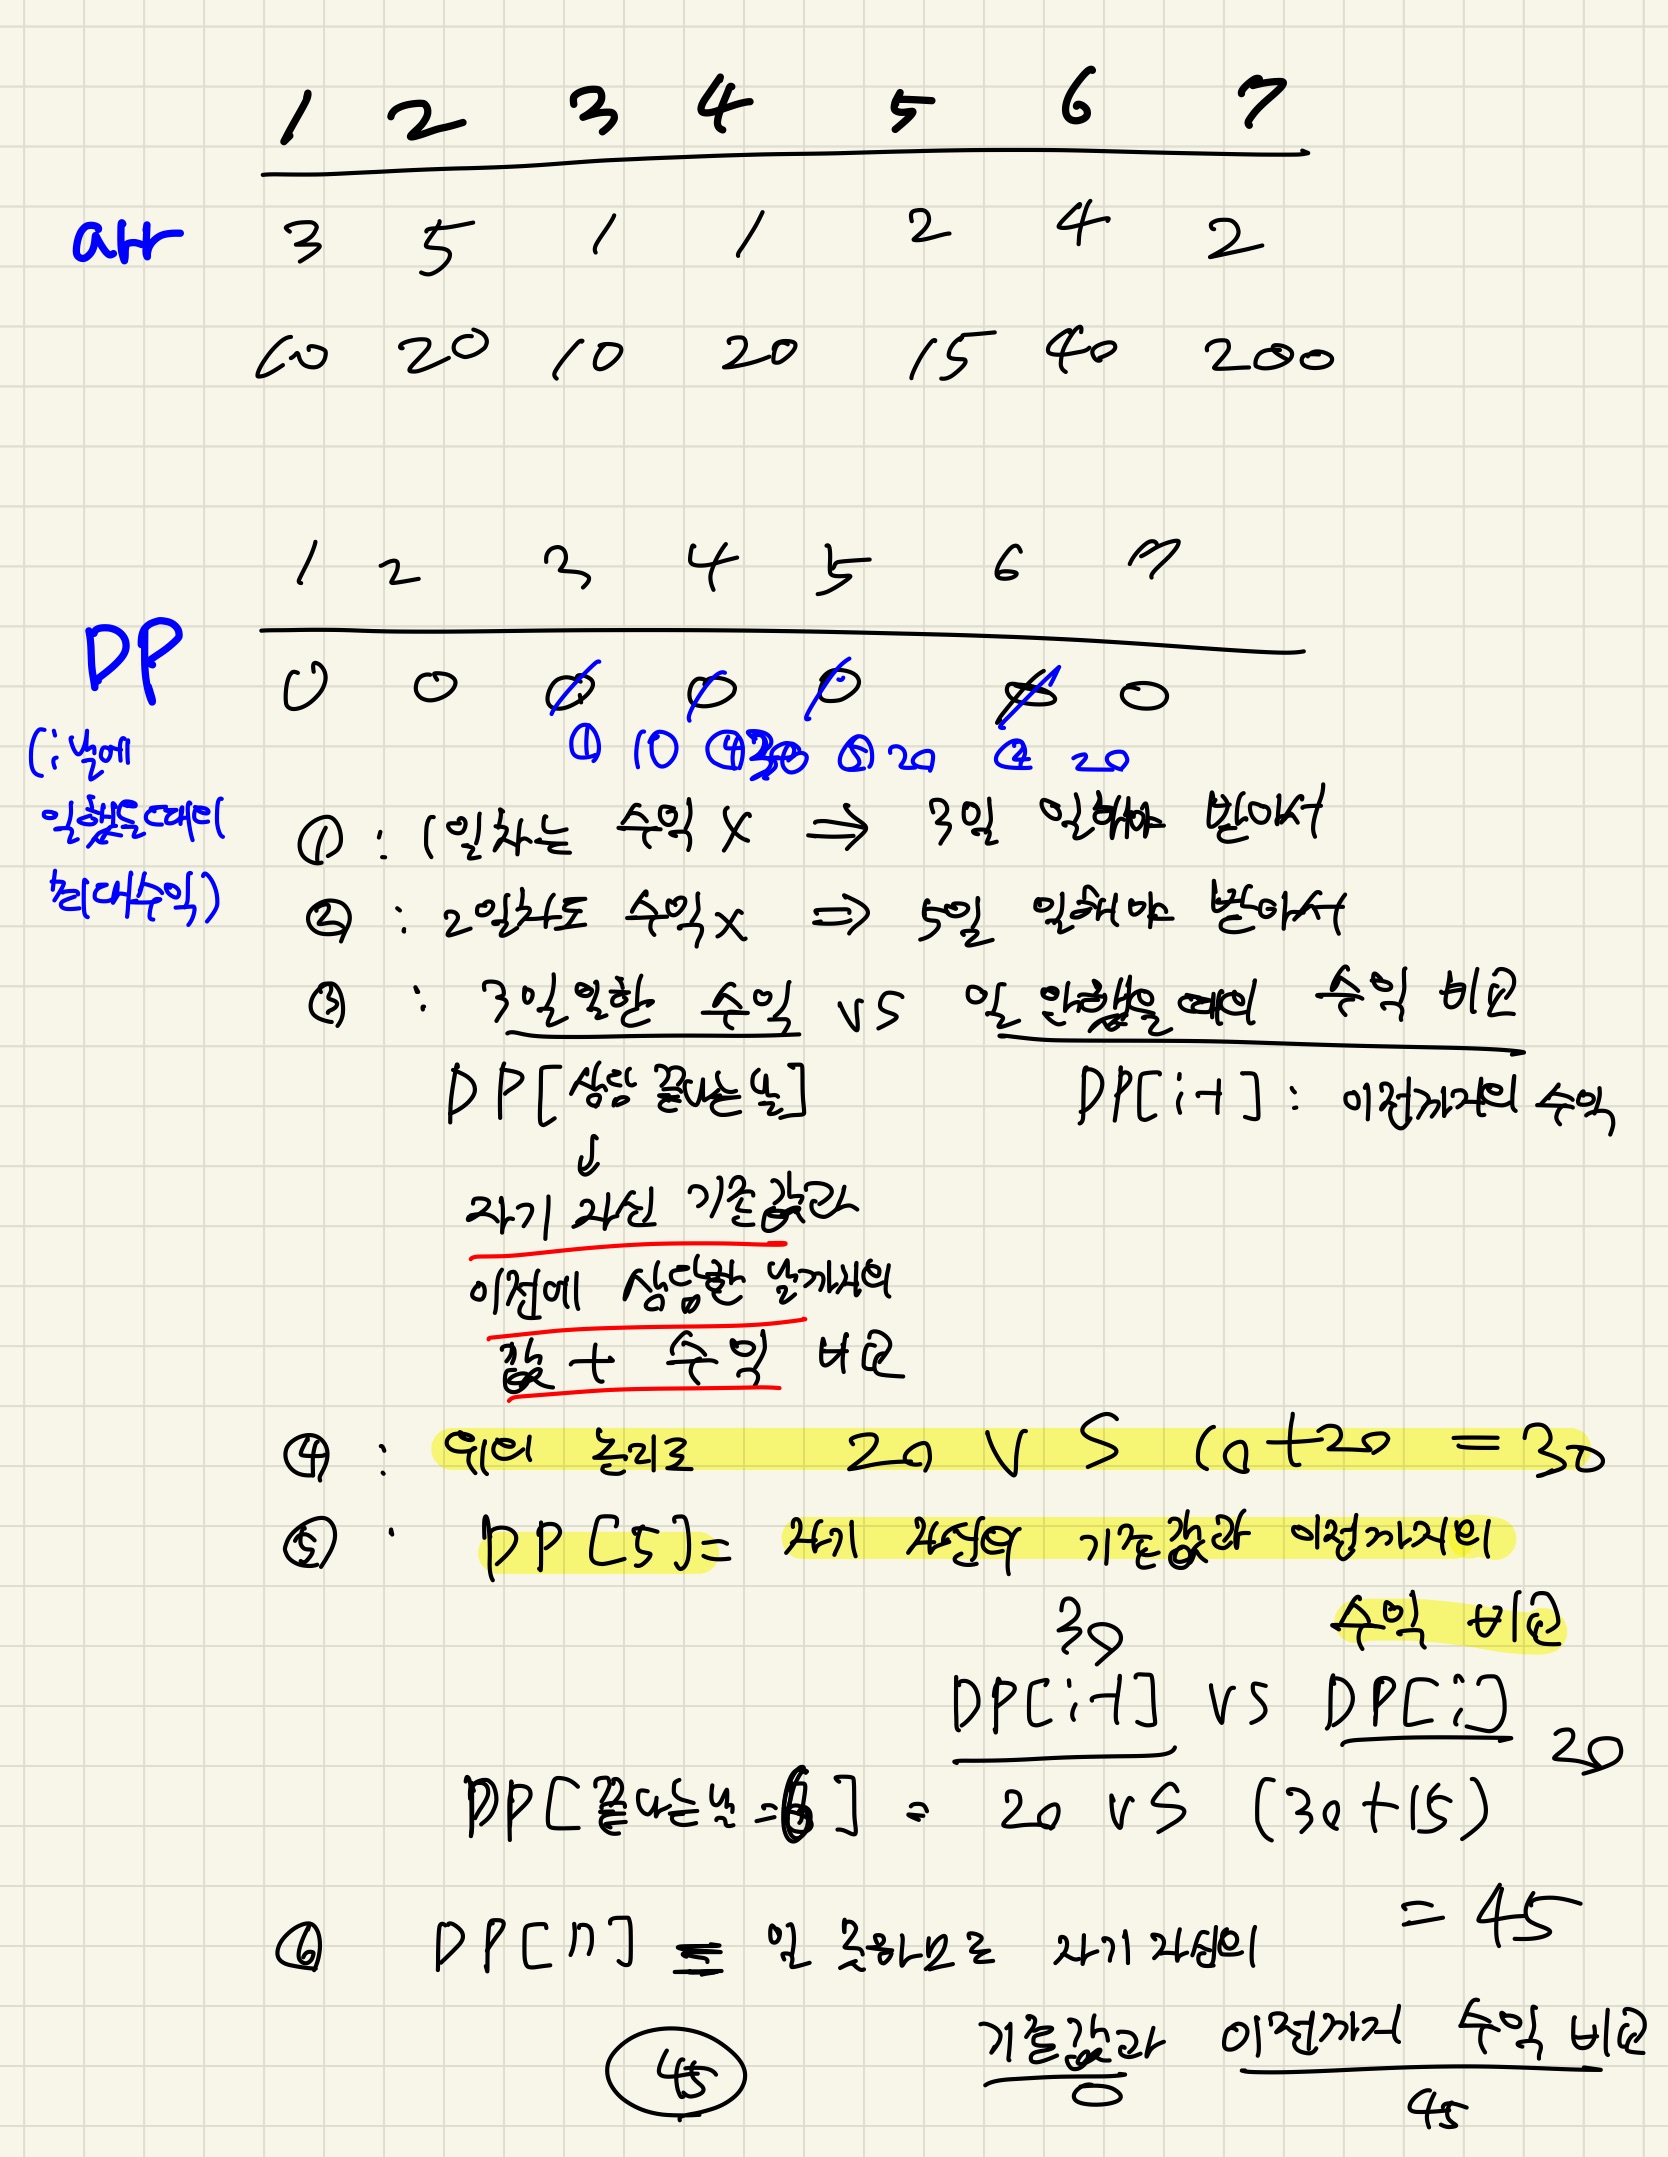 1 2 3 4 5 6 7
arr 3 5 1 1 2 4 2
10 20 10 20 15 40 200
1 2 3 4 5 6 7
DP 0 0 0 0 0 0 0
(i날에 ① 10 ④ 30 ⑤ 20 ② 20
일했을때의
최대수익)
① : 1일차는 수익 X ⇒ 3일 일해야 받아서
② : 2일차도 수익 X ⇒ 5일 일해야 받아서
③ : 3일 일한 수익 VS 일 안했을 때의 수익 비교
DP[상담 끝나는 날] DP[i-1] : 이전까지의 수익
↓
자기 자신 기존값과
이전에 상담한 날까지의
값 + 수익 비교
④ : 위의 논리로 20 VS 10+20 = 30
⑤ : DP[5] = 자기 자신의 기존값과 이전까지의
수익 비교
30
DP[i-1] VS DP[i]
20
DP[끝나는날=6] = 20 VS (30+15)
= 45
⑥ DP[7] = 일 못하므로 자기 자신의
기존값과 이전까지 수익 비교
45 0 45